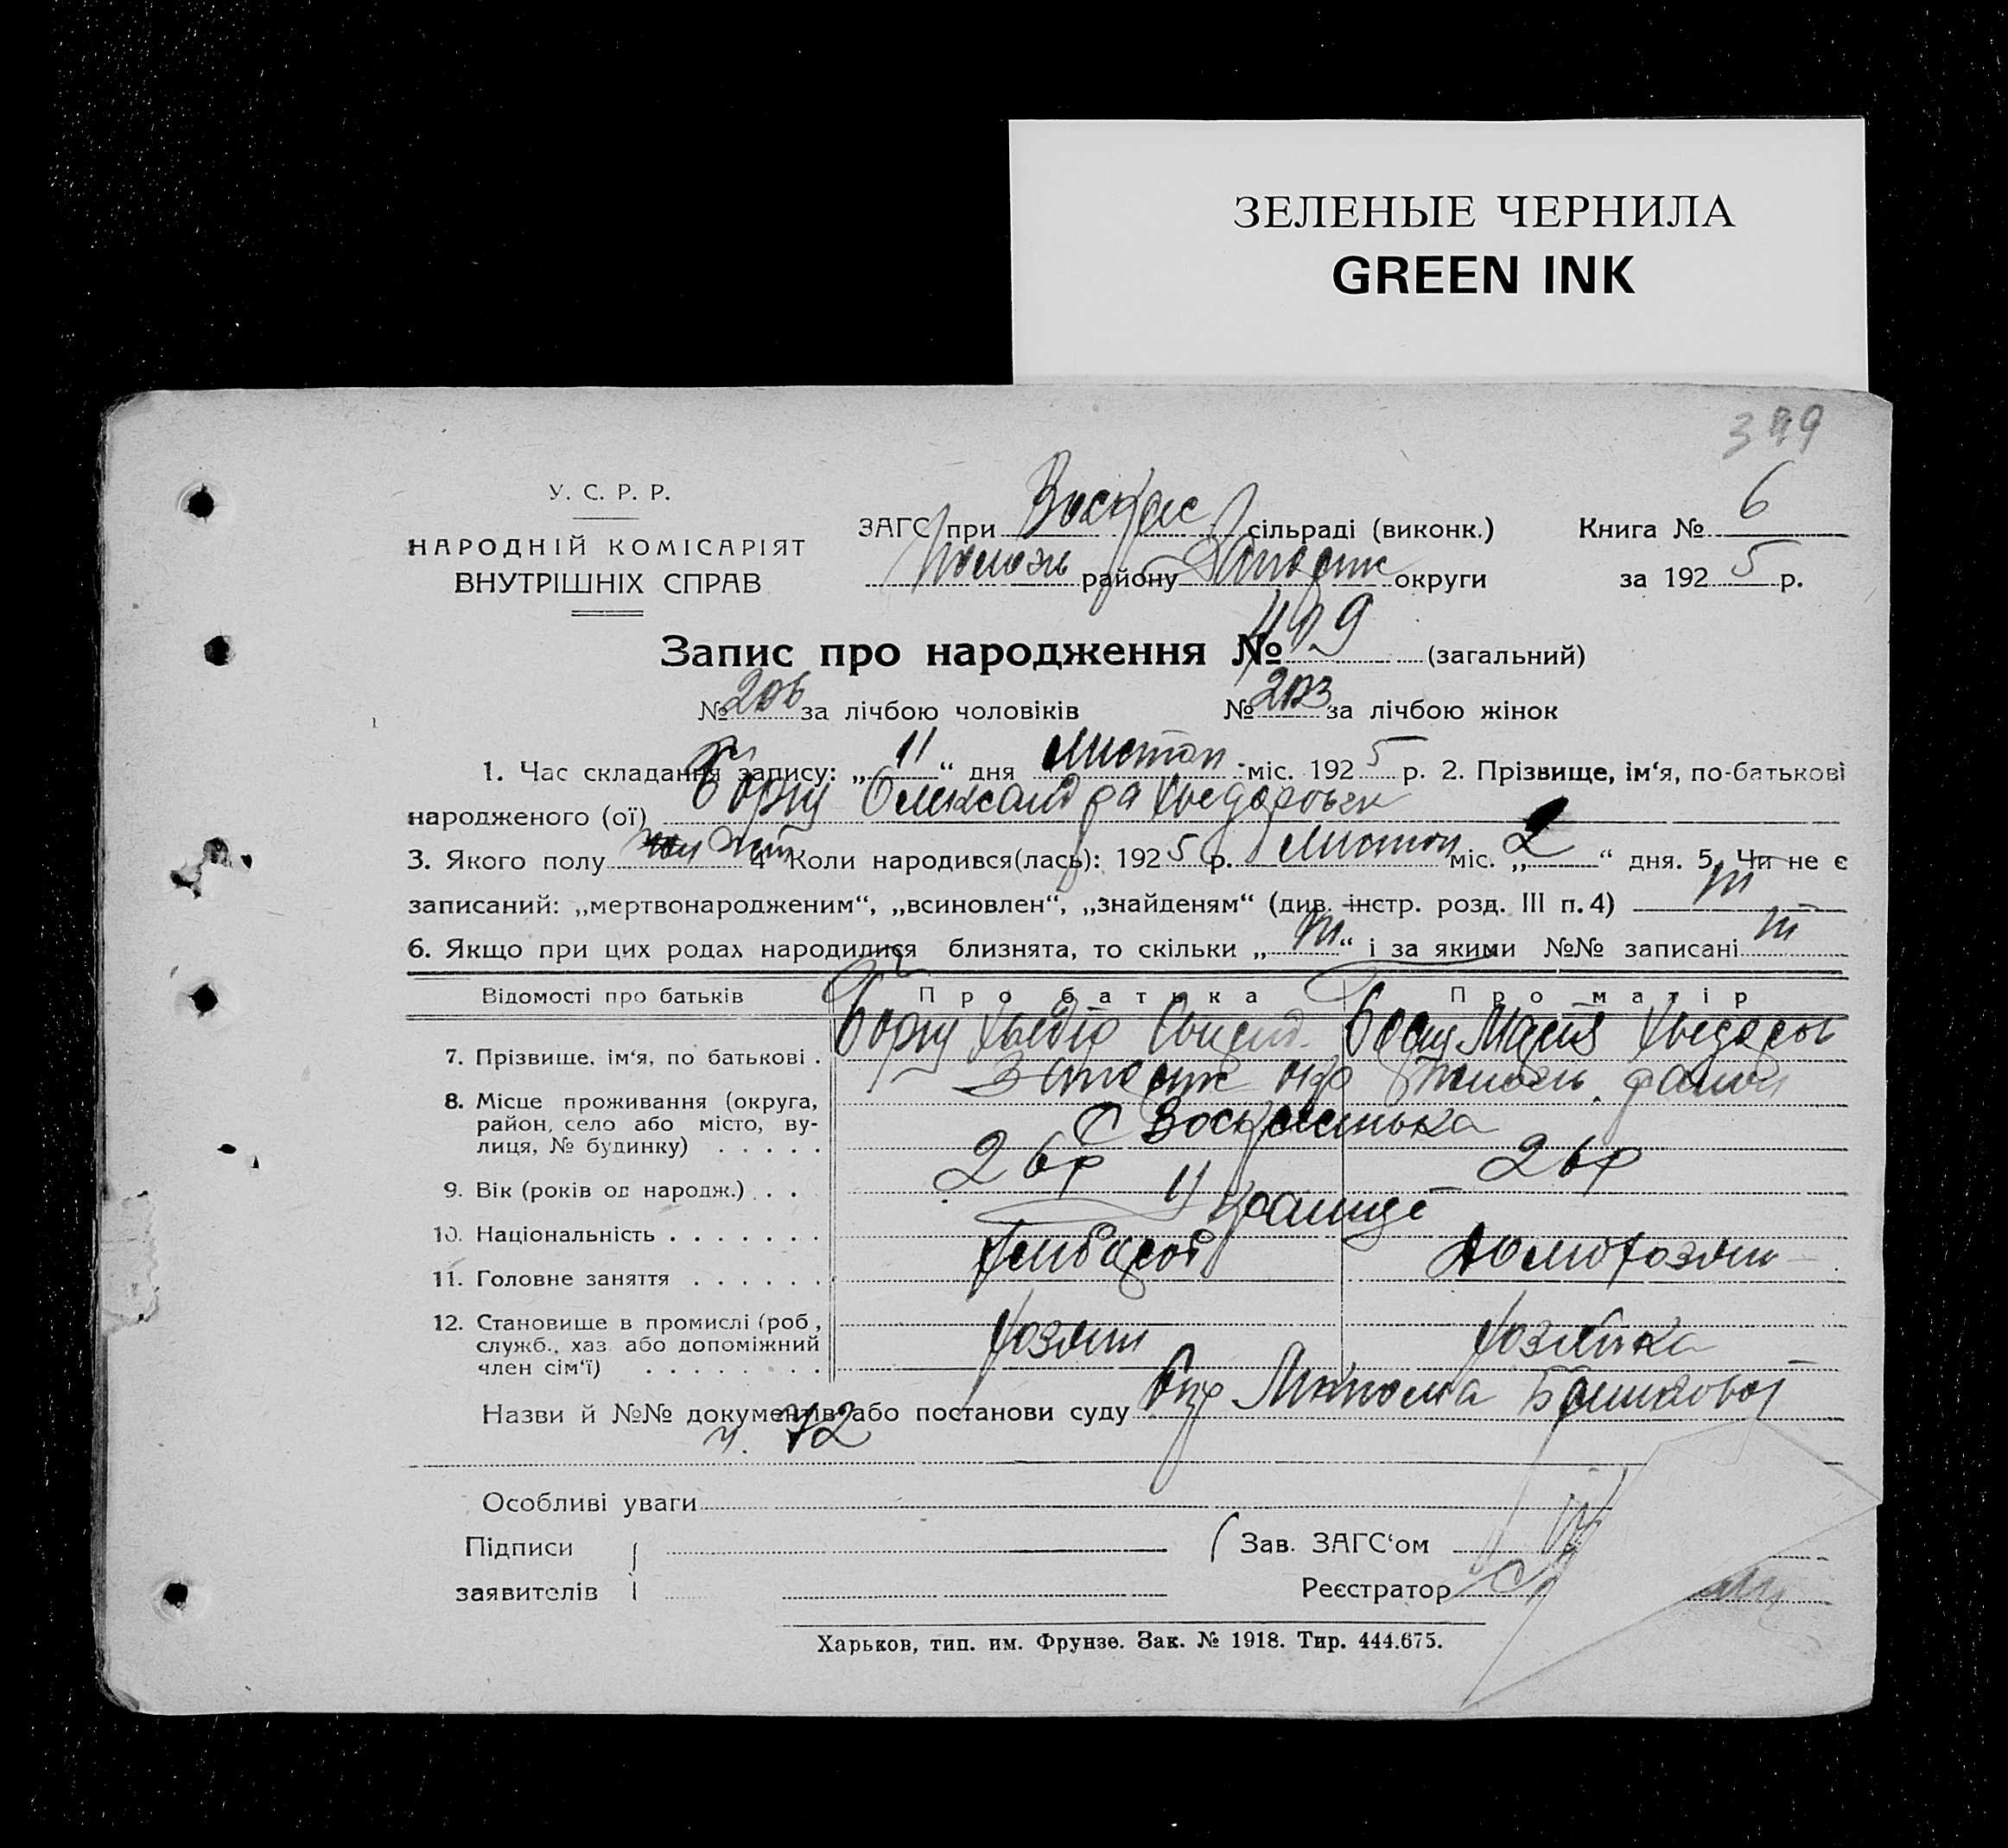 ЗЕЛЕНЫЕ ЧЕРНИЛА
GREEN INK
У. С. Р. Р.
НАРОДНІЙ КОМІСАРІЯТ
ВНУТРІШНІХ СПРАВ
ЗАГС при Воскрес сільраді (виконк.) Книга № 6
району Запоріж округи за 1925 р.
Запис про народження № 409 (загальний)
№ 206 за лічбою чоловіків № 203 за лічбою жінок
1. Час складання запису: „11“ дня Листоп міс. 1925 р. 2. Прізвище, ім‘я, по-батькові
народженого (ої) Олександра Хведоровн
3. Якого полу жін 4 Коли народився(лась): 1925 р. Листоп міс. „2“ дня. 5. Чи не є
записаний: „мертвонародженим“, „всиновлен“, „знайденям“ (див. інстр. розд. III п. 4) ні
6. Якщо при цих родах народилися близнята, то скільки „ні“ і за якими №№ записані ні
Відомості про батьків Про батька Про матір
7. Прізвище, ім‘я, по батькові . Хведір Марія Хведоров
8. Місце проживання (округа, район, село або місто, вулиця, № будинку) . . . . . Запоріж окр район
с Воскресенька
9. Вік (років од народж.) . . 26р 26р
10. Національність . . . . . . . Українці
11. Головне заняття . . . . . . Хлібороб Домохозяйн
12. Становище в промислі (роб., служб., хаз або допоміжний член сім‘ї) . . . . . . . Хозяин Хозяйка
Назви й №№ документів або постанови суду
ч. 72
Особливі уваги
Підписи заявителів
Зав. ЗАГС‘ом
Реєстратор
Харьков, тип. им. Фрунзе. Зак. № 1918. Тир. 444.675.